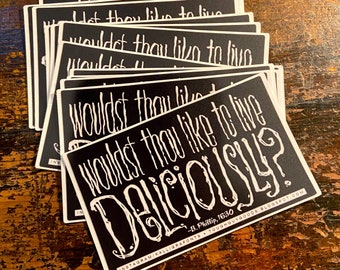 wouldst thou like to live
wouldst thou like to live
wouldst thou
wouldst thou like to live
DELICIOUSLY?
-B. Phillip, 1630